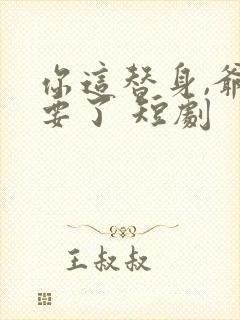 你這替身,爺
要了 短劇
王叔叔